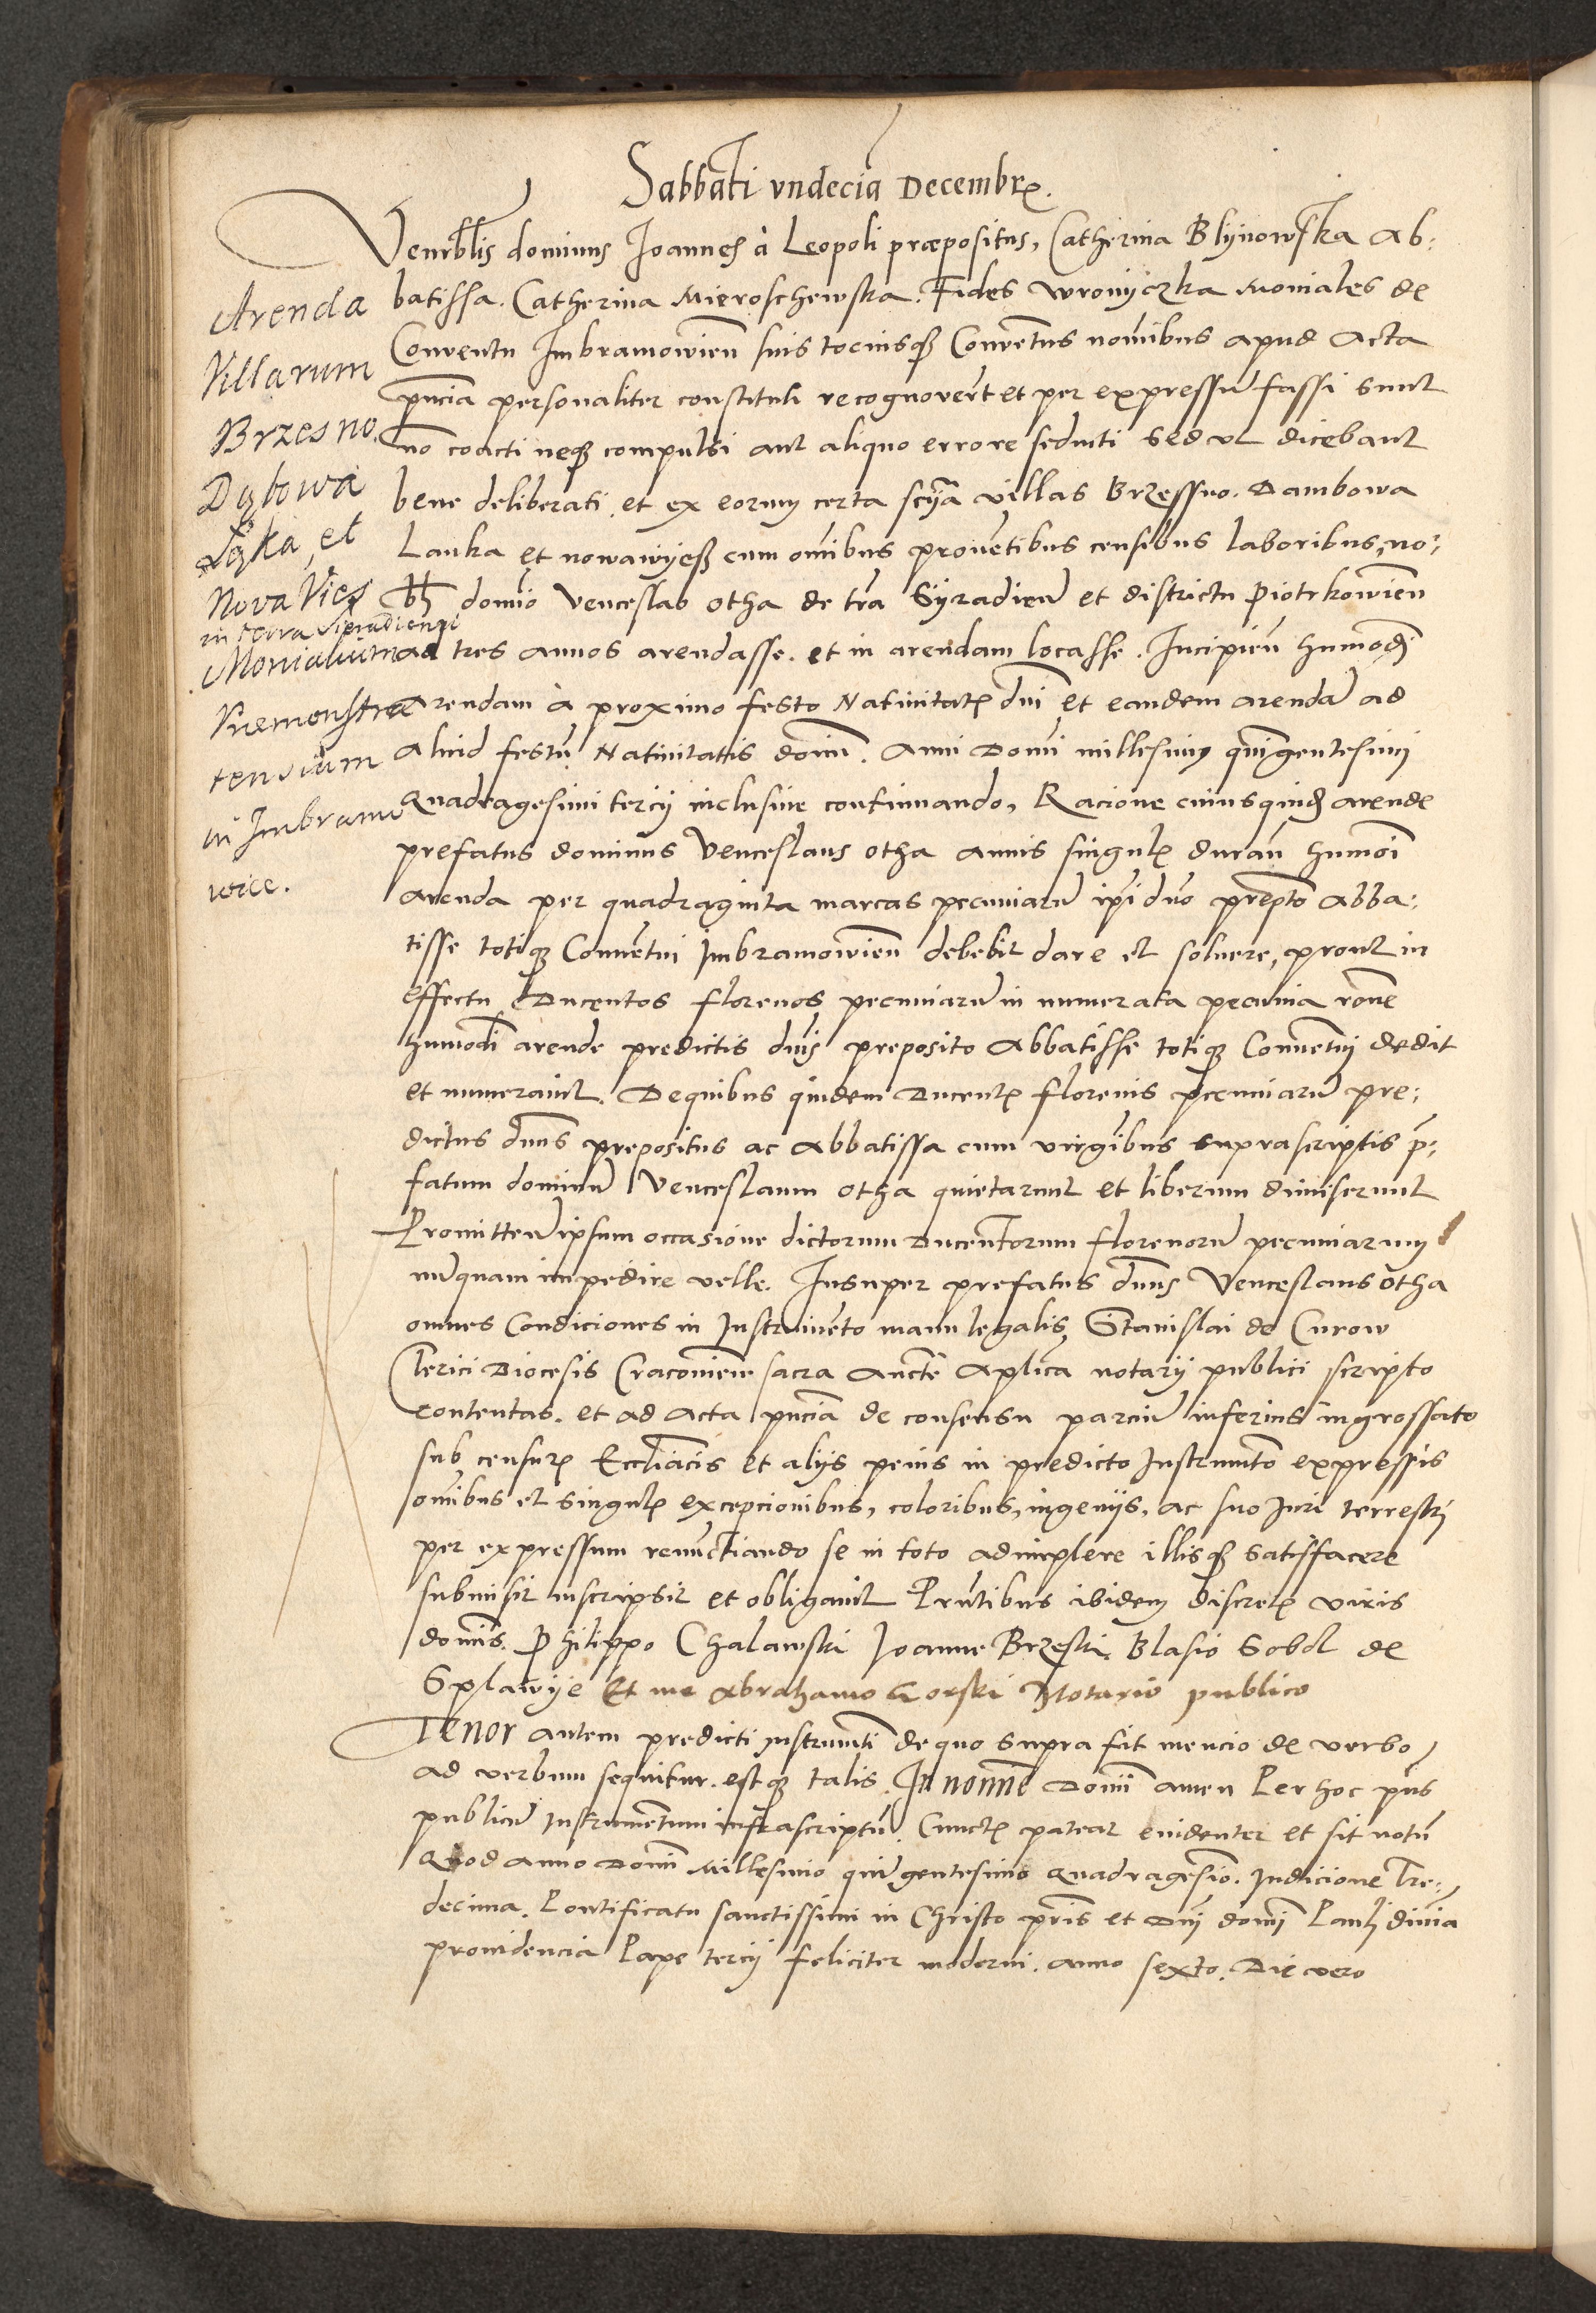 Sabbati vndecia Decembr.
Venerblis dominus Joannes à Leopoli præpositus, Catherina Blijnowska Ab:
batissa. Catherina Mieroschewska. Fides wronijczka Moniales de
Conventu Imbramowien suis tociusq Conventus nomibus apud Acta
pncia personaliter constituti recognovert et per expressu fassi sunt
no coacti neq compulsi aut aliquo errore seducti sed ut dicebant
bene deliberati et ex eorum certa scija villas Brzessno. Dambowa
Lanka et nowawijeß cum omibus proventibus censibus laboribus, no:
domio Venceslao otha de tra Sijradien et districtu Piotrkowien
ad tres annos arendasse. et in arendam locasse. Incipien humodi
arendam à proximo festo Natiuitat dni et eandem arenda ad
aliud festu Natiuitatis domi. Anni Domi millesimi quigentesimi
Quadragesimi tercij inclusiue continuando, Racione cuiusquid arende
prefatus dominus Venceslaus otha annis singul duran humoi
arenda per quadraginta marcas pecuniaru ipi dno prepto Abba:
tisse totiq Conuentui Imbramowien debebit dare et soluere, prout in
effectu Ducentos florenos pecuniaru in numerata pecunia rone
humodi arende predictis dnis preposito Abbatisse totiq Conuentui dedit
et numerauit. De quibus quidem Ducent florenis pecuniaru pre:
dictus dnns prepositus ac Abbatissa cum virgibus suprascriptis p:
fatum dominu Venceslaum otha quietarunt et liberum dimiserunt
Promitten ipsum occasione dictorum Ducentorum florenoru pecuniarum
nuquam impedire velle. Insuper prefatus dnns Venceslaus otha
omnes Condiciones in Instrumento manu legalis Stanislai de Curow
Clerici Diocesis Cracouien sacra Aucte Aplica notarij publici scripto
contentas. et ad Acta pncia de consensu parciu inferius ingrossato
sub censur Eccliacis et alijs penis in predicto Instrumto expressis
omibus et singul excepcionibus, coloribus, ingenijs, ac suo Juri terrestri
per expressum renunctiando se in toto adimplere illisq satisfacere
submisit inscripsit et obligauit Prntibus ibidem discret viris
domis. Philippo Chalawski Joanne Brzeski. Blasio Sobol de
Splawije Et me Abrahamo Gorski Notario publico
Tenor autem predicti instrumti de quo supra fit mencio de verbo
ad verbum sequitur. estq talis. In nomine Domi amen Per hoc pns
publicu Instrumentum infrascriptu. Cunct pateat euidenter et sit notu
Quod anno Domi Millesimo quigentesimo quadragesio. Indicione Tre:
decima. Pontificatu sanctissimi in Christo pris et Dni domi Pauli diuia
prouidencia Pape tercij feliciter moderni. anno sexto. Die vero
Arenda
Villarum
Brzesno.
Dąbowa
Łąka, et
Nova Vies
in terra Siradiensi
Monialium
Præmonstra
tensium
in Imbramo
wice.